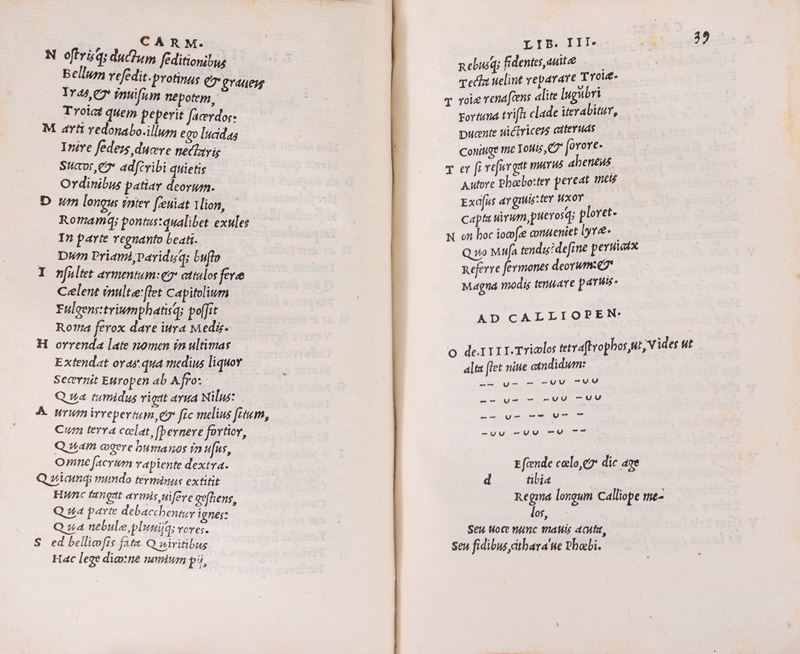 CARM.
N ostrisq́; ductum seditionibus
Bellum resedit. protinus & graueis
Iras, & inuisum nepotem,
Troica quem peperit sacerdos:
M arti redonabo. illum ego lucidas
Inire sedeis, ducere nectaris
Succos, & adscribi quietis
Ordinibus patiar deorum.
D um longus inter sæuiat Ilion,
Romamq́; pontus: qualibet exules
In parte regnanto beati.
Dum Priami, Paridisq́; busto
I nsultet armentum: & catulos feræ
Cælent inultæ: stet Capitolium
Fulgens: triumphatisq́; possit
Roma ferox dare iura Medis.
H orrenda late nomen in ultimas
Extendat oras. qua medius liquor
Secernit Europen ab Afro:
Qua tumidus rigat arua Nilus:
A urum irrepertum, & sic melius situm,
Cum terra cœlat, spernere fortior,
Quam cogere humanos in usus,
Omne sacrum rapiente dextra.
Quicunq; mundo terminus extitit
Hunc tangat armis, uisere gestiens,
Qua parte debacchentur ignes:
Qua nebulæ, pluuijq́; rores.
S ed bellicosis fata Quiritibus
Hac lege dico: ne nimium pij,
LIB. III. 39
Rebusq́; fidentes, auitæ
Tecta uelint reparare Troiæ.
T roiæ renascens alite lugubri
Fortuna tristi clade iterabitur,
Ducente uictriceis cateruas
Coniuge me Iouis, & sorore.
T er si resurgat murus aheneus
Autore Phœbo: ter pereat meis
Excisus arguis: ter uxor
Capta uirum, puerosq́; ploret.
N on hoc iocosæ conueniet lyræ.
Quo Musa tendis? desine peruicax
Referre sermones deorum: &
Magna modis tenuare paruis.
AD CALLIOPEN.
O de. IIII. Tricolos tetrastrophos, ut, Vides ut
alta stet niue candidum:
‒‒ ∪‒ ‒ ‒∪∪ ‒∪∪
‒‒ ∪‒ ‒ ‒∪∪ ‒∪∪
‒‒ ∪‒ ‒‒ ∪‒ ‒
‒∪∪ ‒∪∪ ‒∪ ‒‒
Escende cœlo, & dic age
d tibia
Regina longum Calliope me-
los,
Seu uoce nunc mauis acuta,
Seu fidibus, cithara'ue Phœbi.